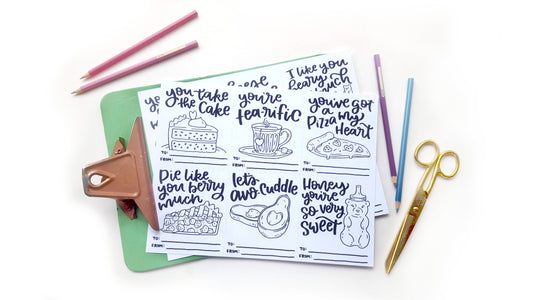 I like you
beary
much
you take
the Cake
TO:
FROM:
you're
tea-rific
TO:
FROM:
You've got
a
Pizza my
Heart
TO:
FROM:
Die like
you berry
much
TO:
FROM:
let's
avo-cuddle
TO:
FROM:
Honey
you're
so very
sweet
TO:
FROM: